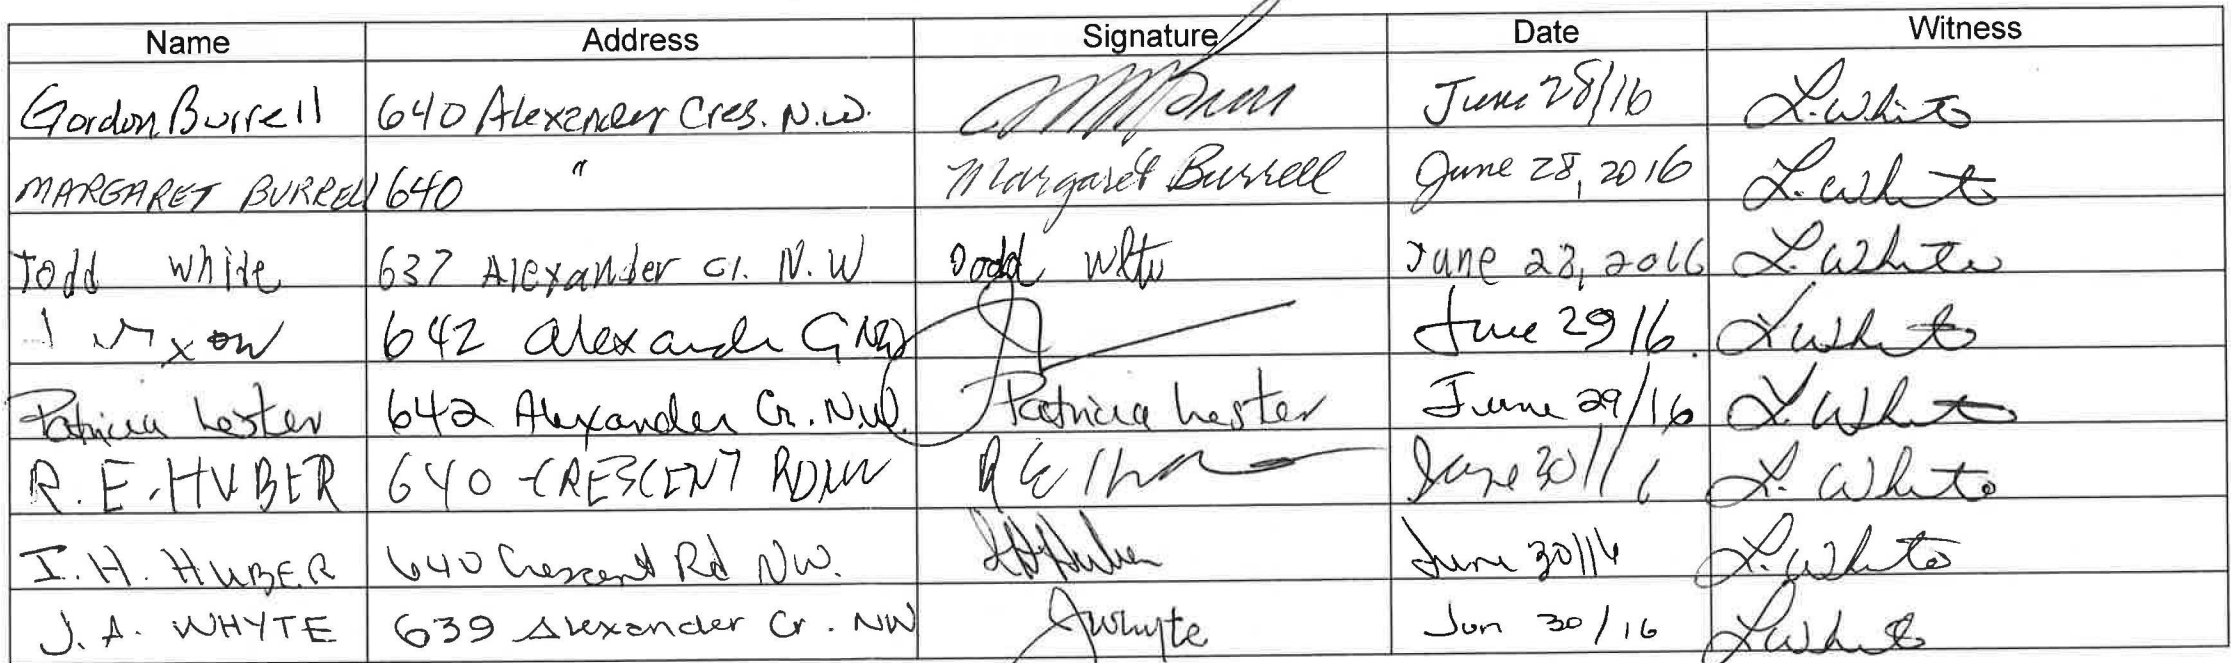 Name Address Signature Date Witness
Gordon Burrell 640 Alexander Cres. N.W. June 28/16 L. White
MARGARET BURRELL 640 " Margaret Burrell June 28, 2016 L. White
Todd White 637 Alexander Cr. N.W Todd White June 28, 2016 L. White
642 Alexander Cr NW June 29/16. L White
Patricia Lester 642 Alexander Cr. N.W. Patricia Lester June 29/16 L. White
R. E. HUBER 640 CRESCENT RD NW June 30/16 L. White
I. H. HUBER 640 Crescent Rd NW. IH Huber June 30/16 L. White
J. A. WHYTE 639 Alexander Cr. NW J Whyte Jun 30/16 L White